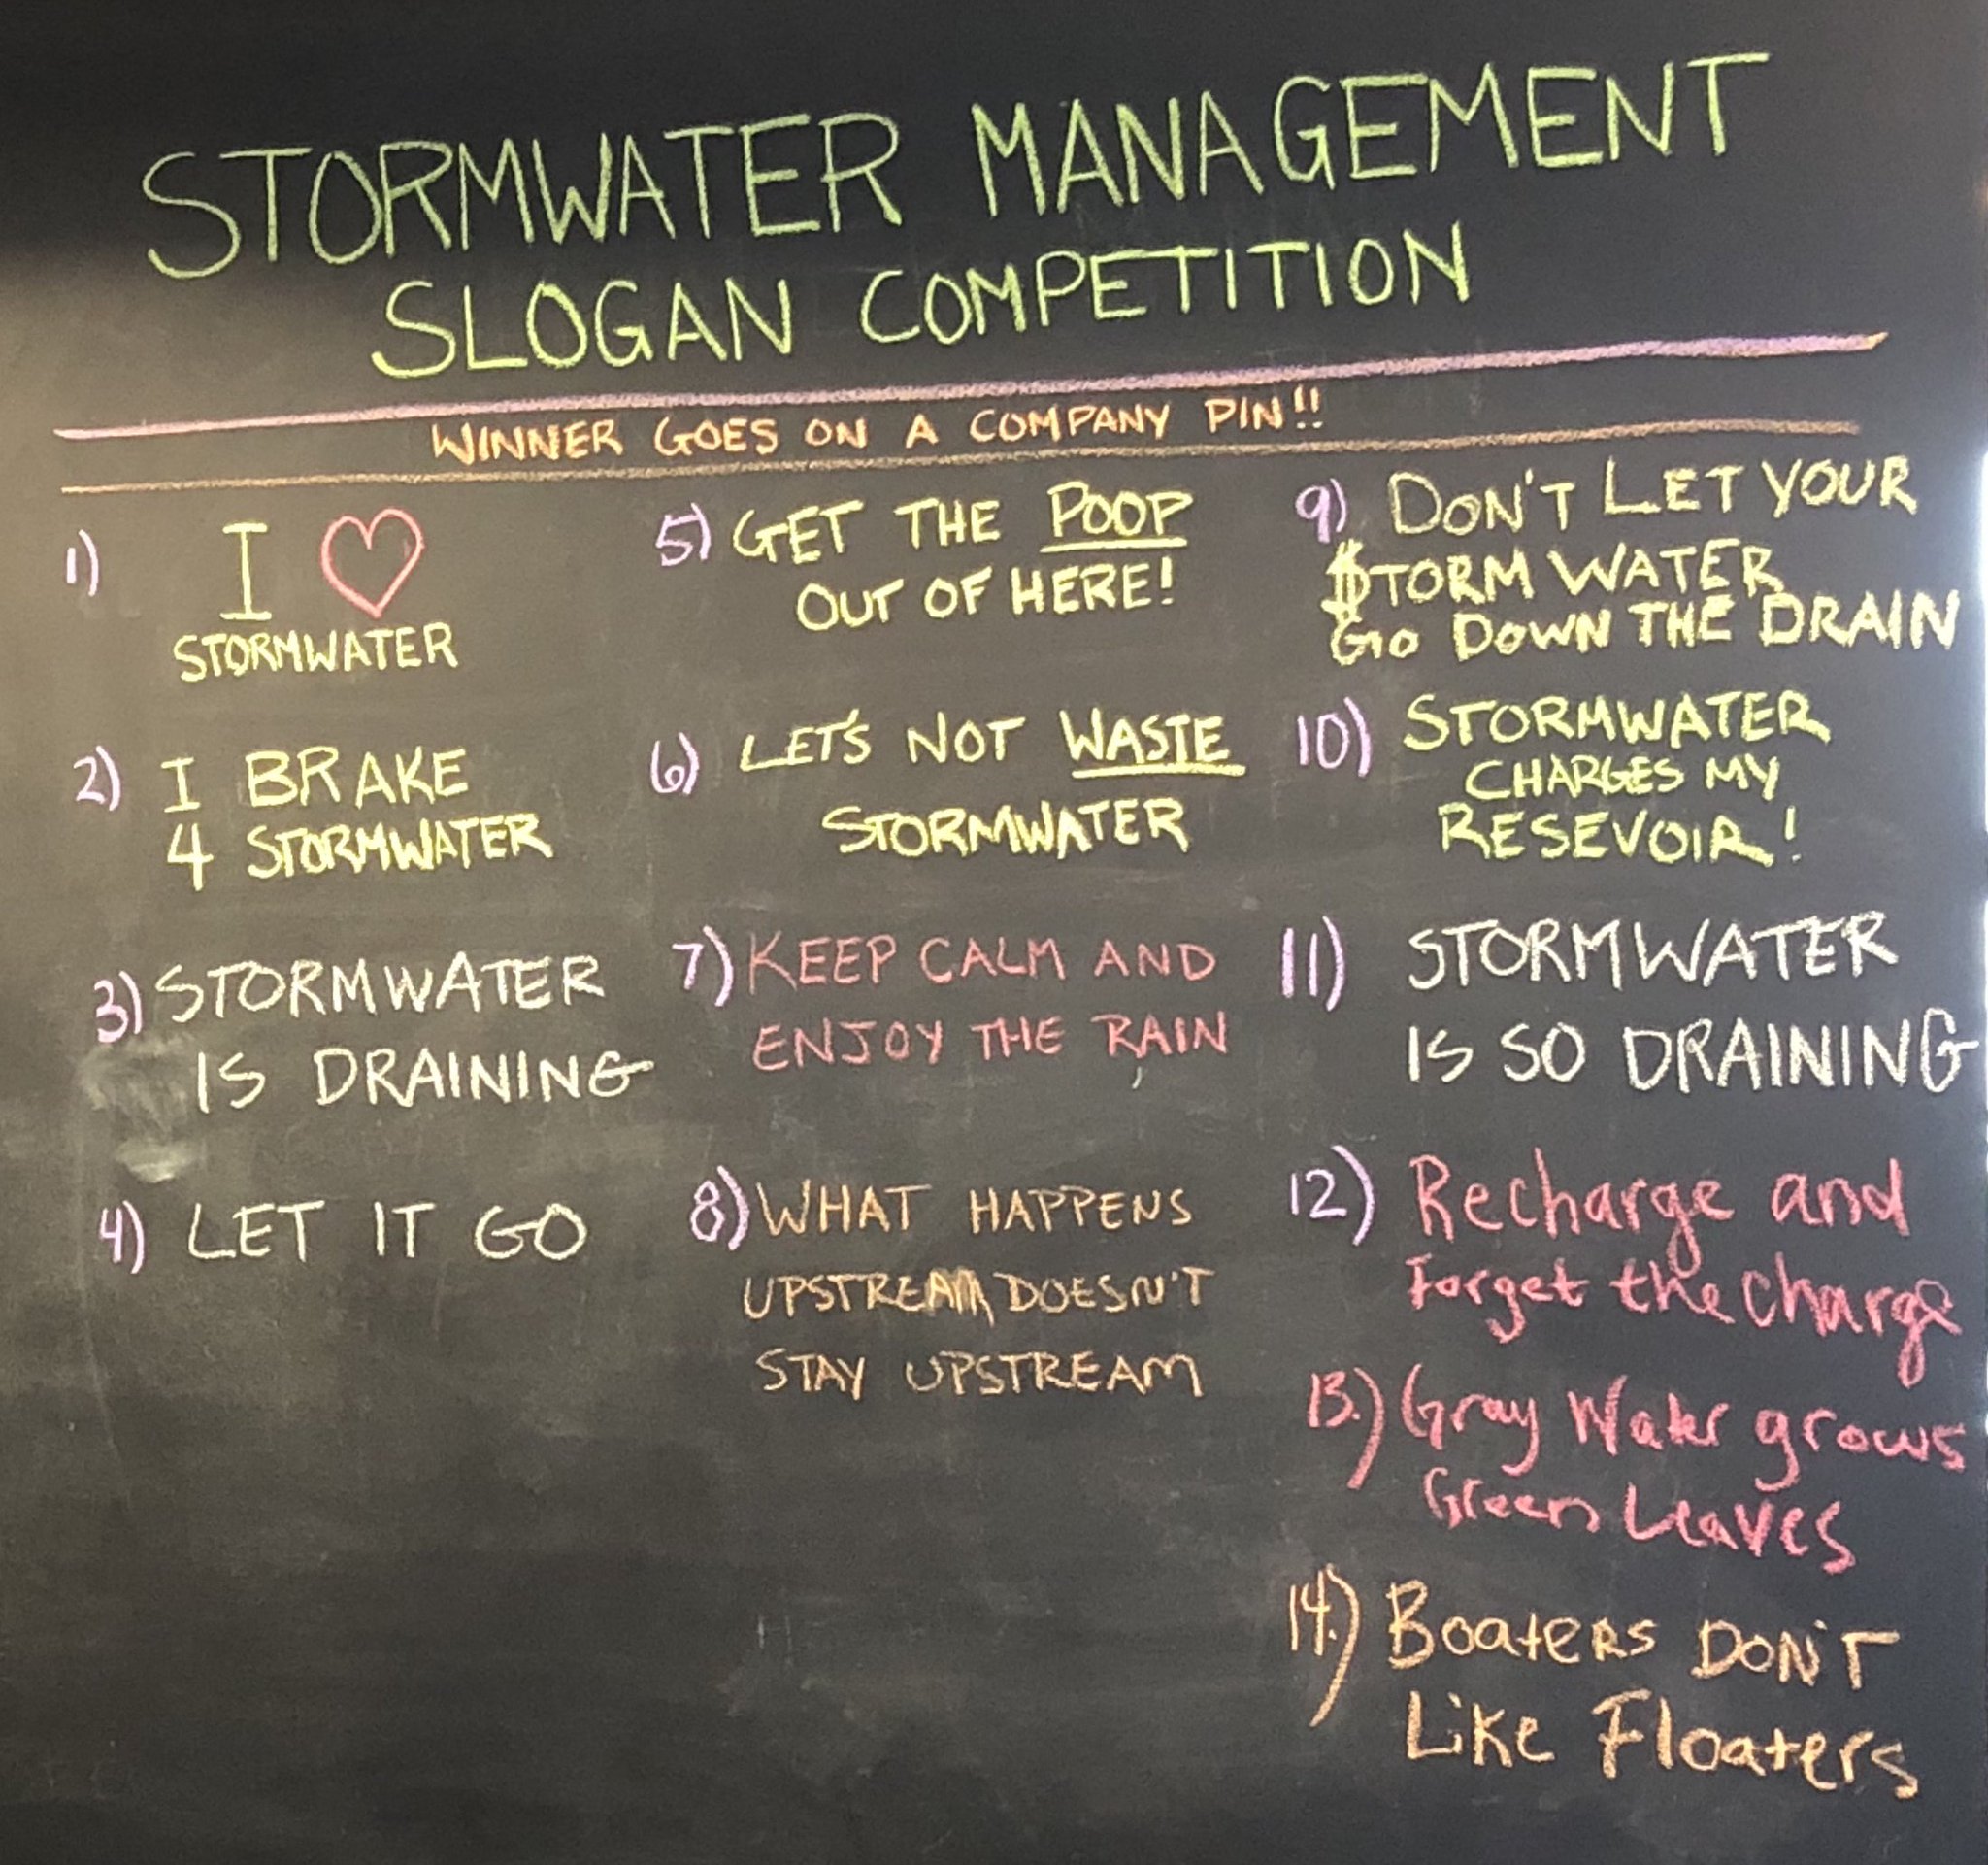 STORMWATER MANAGEMENT
SLOGAN COMPETITION
WINNER GOES ON A COMPANY PIN!!
1) I ♡
STORMWATER
2) I BRAKE
4 STORMWATER
3) STORMWATER
IS DRAINING
4) LET IT GO
5) GET THE POOP
OUT OF HERE!
6) LET'S NOT WASTE
STORMWATER
7) KEEP CALM AND
ENJOY THE RAIN
8) WHAT HAPPENS
UPSTREAM DOESN'T
STAY UPSTREAM
9) DON'T LET YOUR
$TORM WATER
GO DOWN THE DRAIN
10) STORMWATER
CHARGES MY
RESEVOIR!
11) STORMWATER
IS SO DRAINING
12) Recharge and
Forget the charge
13.) Gray Water grows
Green Leaves
14.) Boaters DON'T
Like Floaters